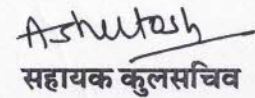 Ashutosh
सहायक कुलसचिव